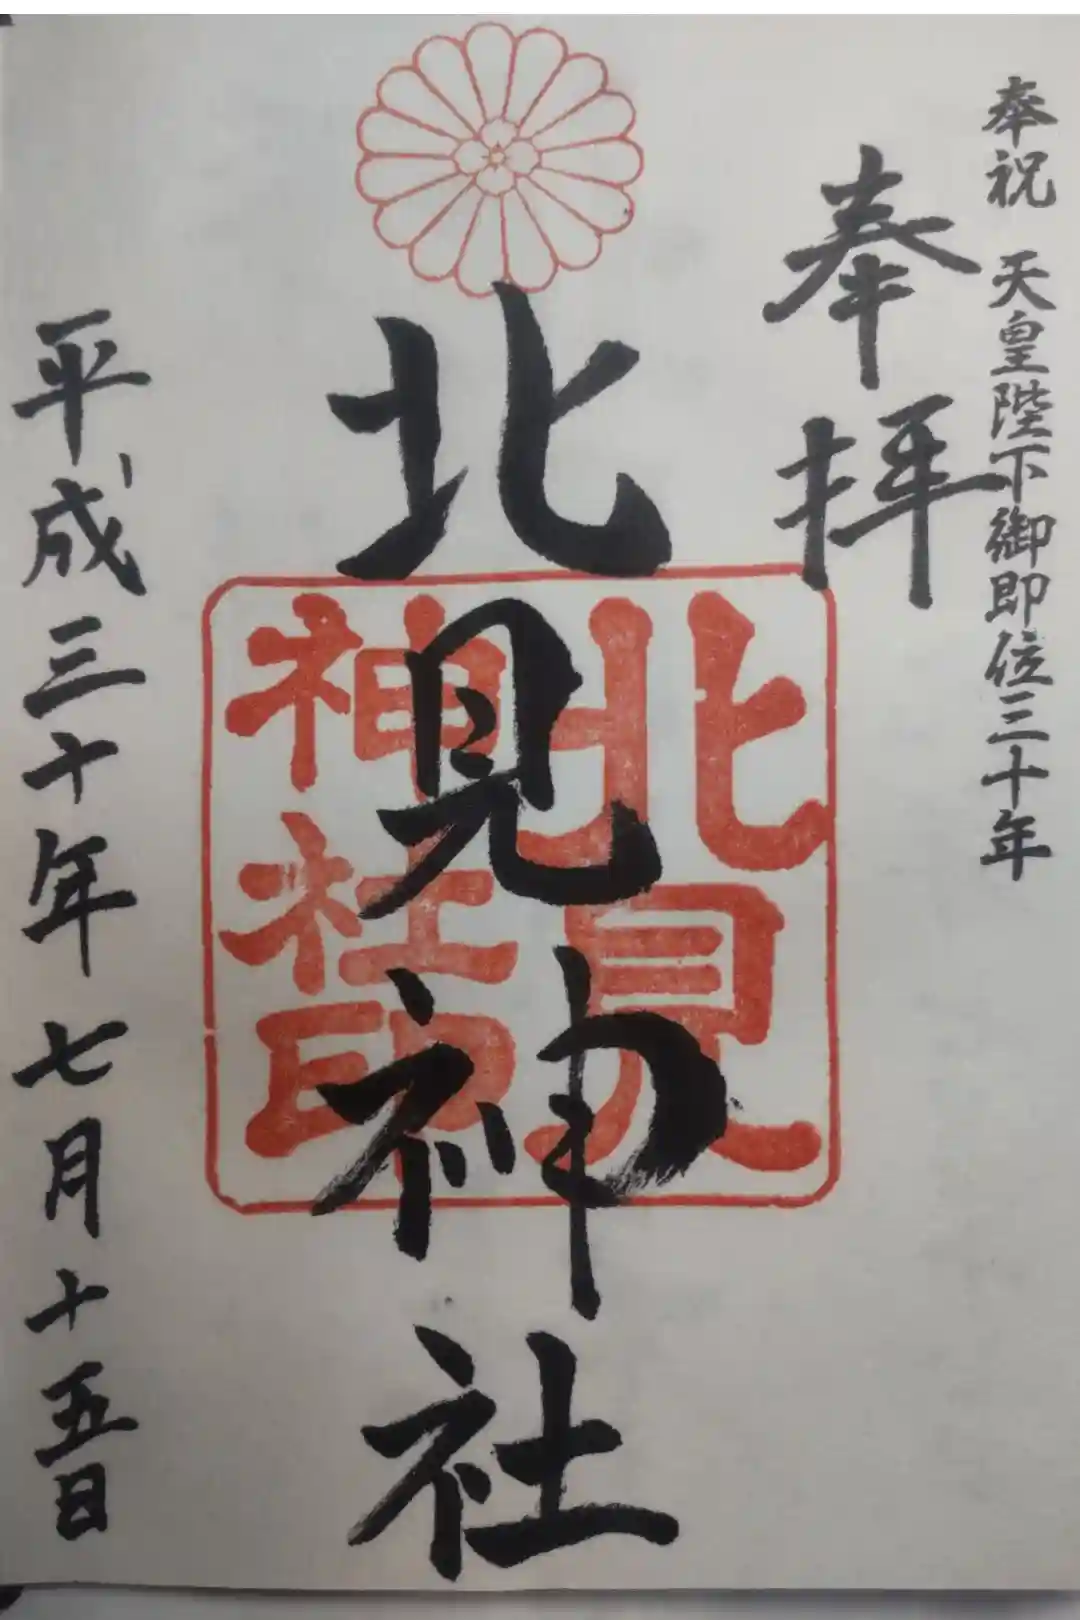 奉祝 天皇陛下御即位三十年
奉拝
北見神社
北見
神社印
平成三十年七月十五日